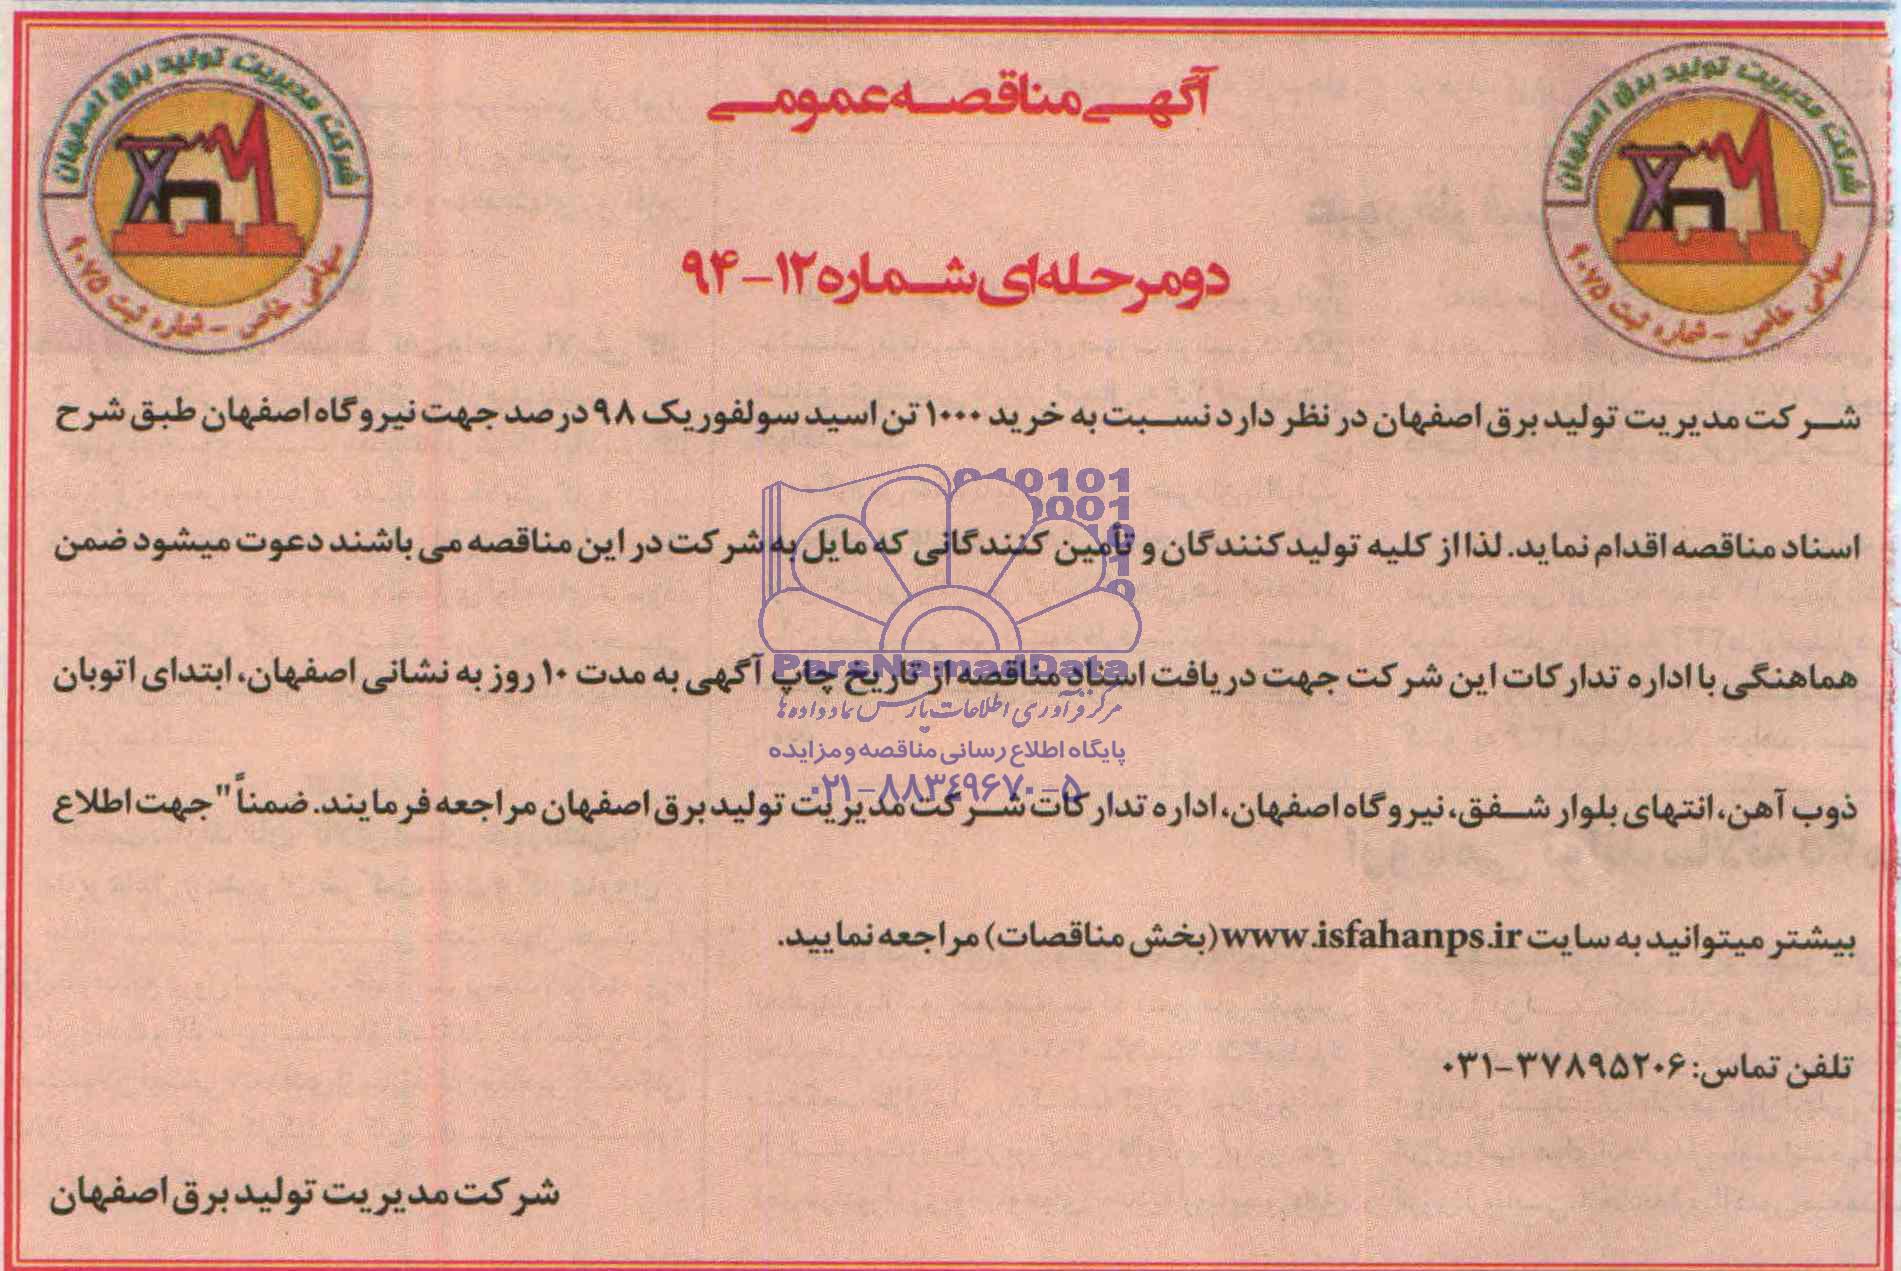 آگهی مناقصه عمومی
دو مرحله ای شماره ۱۲-۹۴
شرکت مدیریت تولید برق اصفهان
سهامی خاص - شماره ثبت ۹۰۷۵
شرکت مدیریت تولید برق اصفهان
سهامی خاص - شماره ثبت ۹۰۷۵
شرکت مدیریت تولید برق اصفهان در نظر دارد نسبت به خرید ۱۰۰۰ تن اسید سولفوریک ۹۸ درصد جهت نیروگاه اصفهان طبق شرح
اسناد مناقصه اقدام نماید. لذا از کلیه تولید کنندگان و تأمین کنندگانی که مایل به شرکت در این مناقصه می باشند دعوت میشود ضمن
هماهنگی با اداره تدارکات این شرکت جهت دریافت اسناد مناقصه از تاریخ چاپ آگهی به مدت ۱۰ روز به نشانی اصفهان، ابتدای اتوبان
ذوب آهن، انتهای بلوار شفق، نیروگاه اصفهان، اداره تدارکات شرکت مدیریت تولید برق اصفهان مراجعه فرمایند. ضمناً "جهت اطلاع
بیشتر میتوانید به سایت www.isfahanps.ir (بخش مناقصات) مراجعه نمایید.
تلفن تماس: ۳۷۸۹۵۲۰۶-۰۳۱
شرکت مدیریت تولید برق اصفهان
ParsNamadData
مرکز فرآوری اطلاعات پارس نماد داده ها
پایگاه اطلاع رسانی مناقصه و مزایده
۰۲۱-۸۸۳۴۹۶۷۰-۵